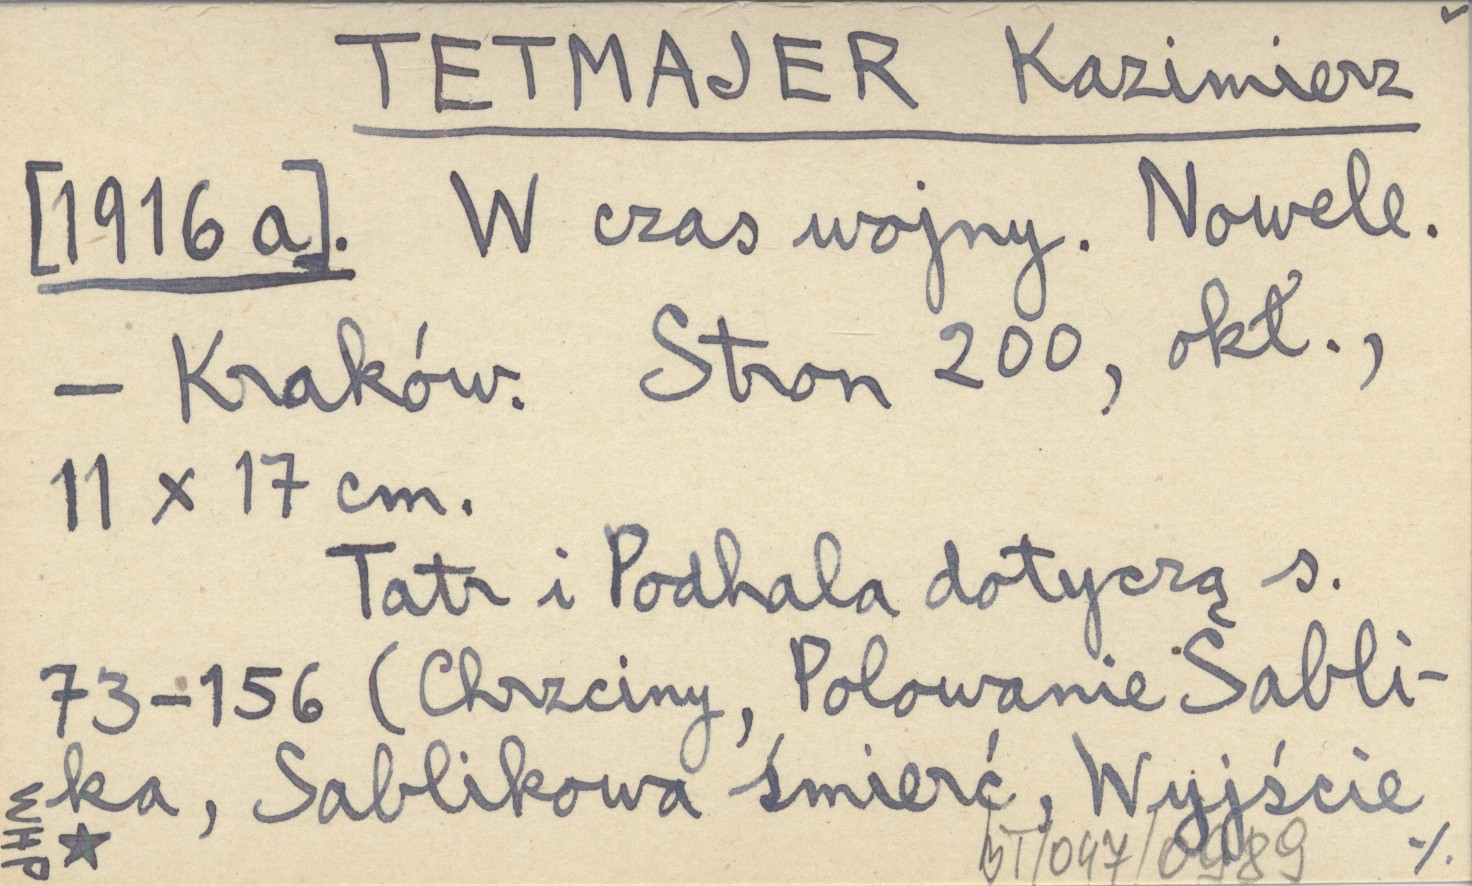 TETMAJER Kazimierz
[1916 a]. W czas wojny. Nowele.
– Kraków. Stron 200, okł.,
11 x 17 cm.
Tatr i Podhala dotyczą s.
73–156 (Chrzciny, Polowanie Sabli-
ka, Sablikowa śmierć, Wyjście
WHP
BT/047/0989
./.